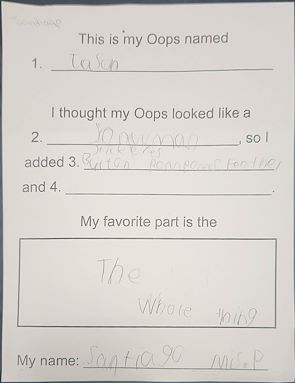 This is my Oops named
1. Jason
I thought my Oops looked like a
2. Snowman, so I
added 3. Button
and 4.
My favorite part is the
The
Whole thing
My name: Santiago